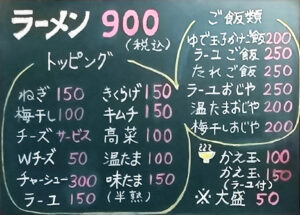 ラーメン 900
(税込)
トッピング
ねぎ 150
梅干し 100
チーズ サービス
Wチーズ 50
チャーシュー 300
ラーユ 150
きくらげ 150
キムチ 150
高菜 100
温たま 100
味たま 150
(半熟)
ご飯類
ゆで玉子かけご飯 200
ラーユご飯 250
たれご飯 250
ラーユおじや 250
温たまおじや 200
梅干しおじや 200
かえ玉 100
かえ玉 150
(ラーユ付)
※大盛 50